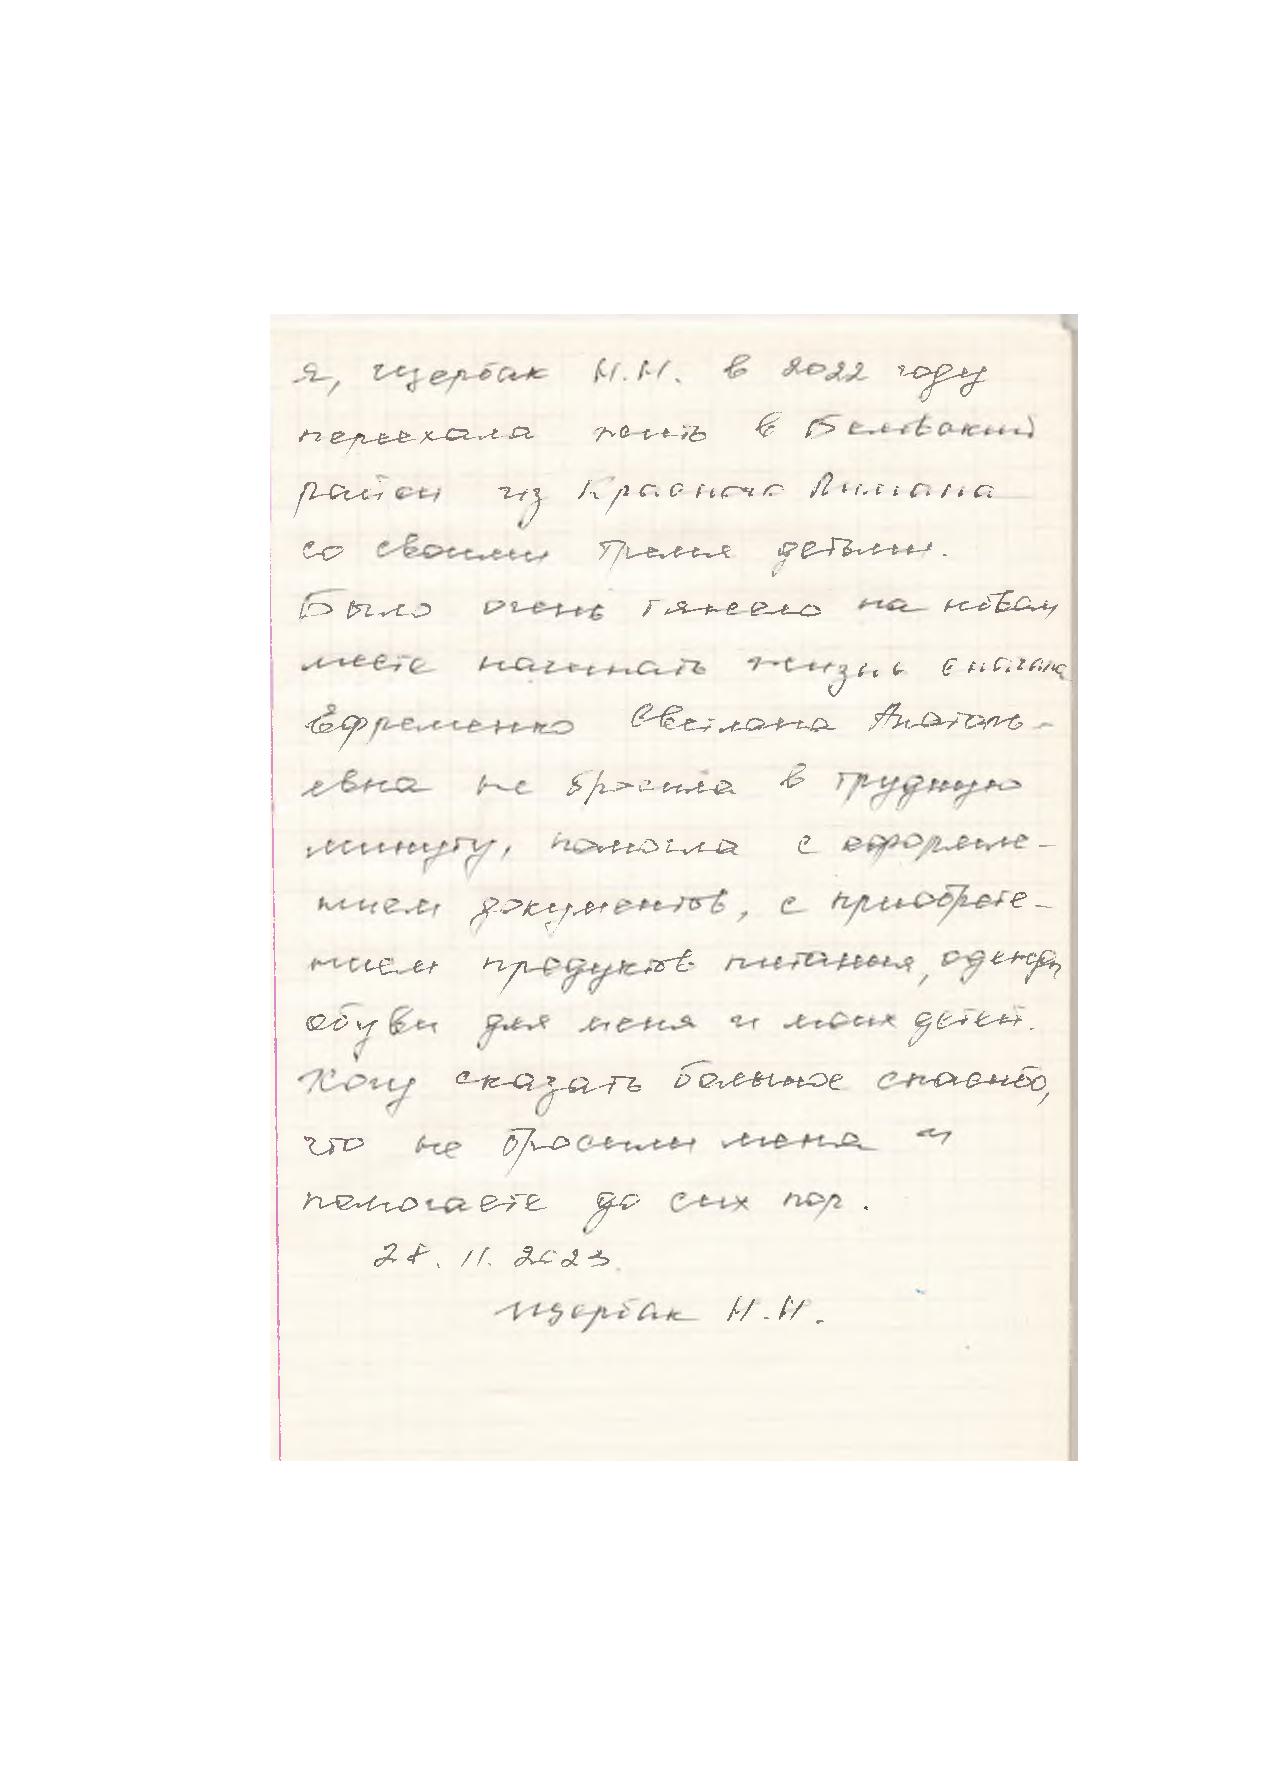 Я, Щербак Н.Н. в 2022 году
переехала жить в Беловский
район из Красного Лимана
со своими тремя детьми.
Было очень тяжело на новом
месте начинать жизнь сначала
Ефременко Светлана Анатоль-
евна не бросила в трудную
минуту, помогла с оформле-
нием документов, с приобрете-
нием продуктов питания, одежды
обуви для меня и моих детей.
Хочу сказать большое спасибо,
что не бросили меня и
помогаете до сих пор.
28.11.2023
Щербак Н.Н.